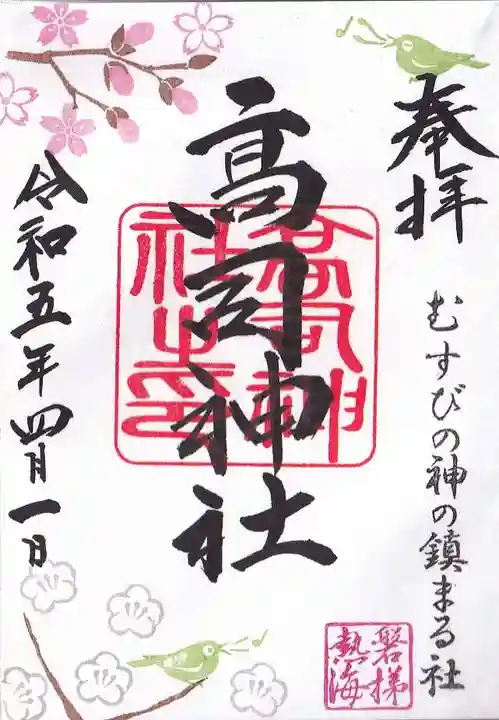 奉拝
むすびの神の鎮まる社
高司神社
高司神社之印
令和五年四月一日
磐梯
熱海